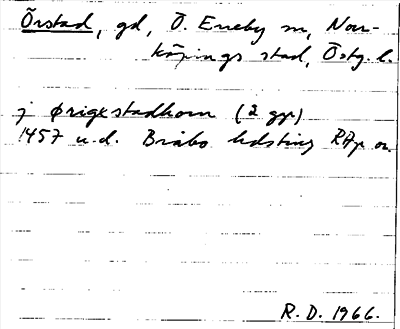 Örstad, gd, Ö. Eneby sn, Nor-
köpings stad, Östg. l.
j ørigxstadhom (2 ggr)
1457 u.d. Bråbo hdsting RAp or.
R.D. 1966.